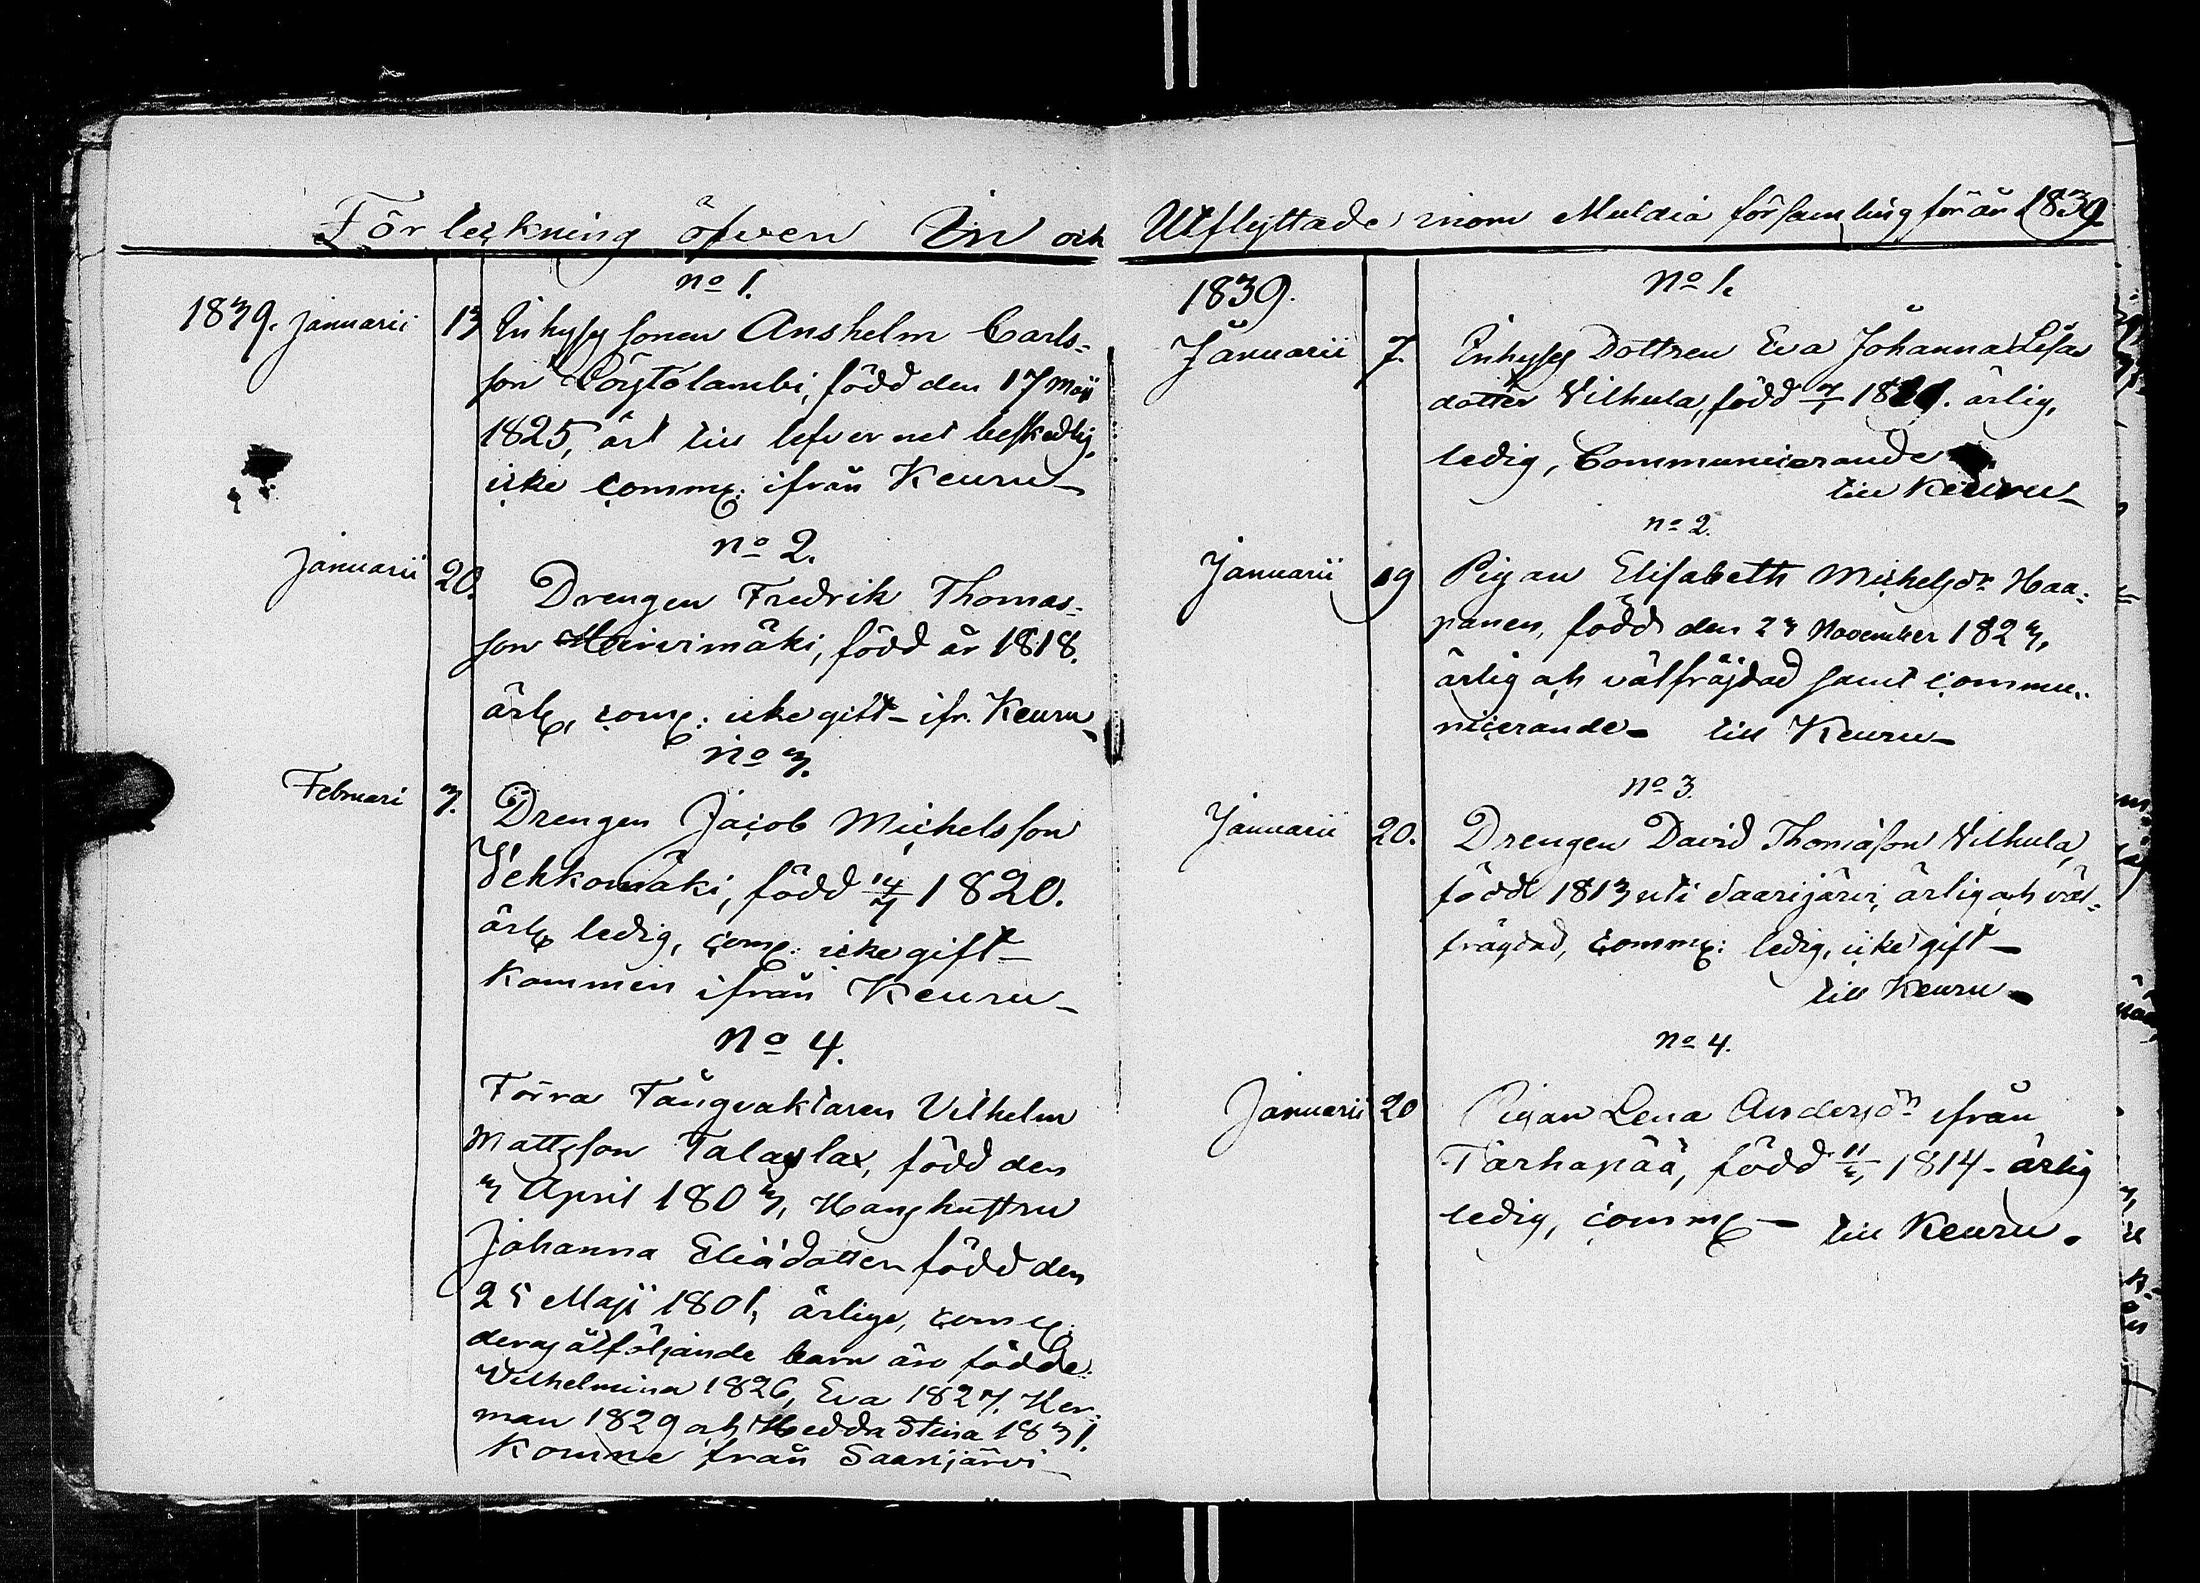 Förteckning öfver In och Utflyttade inom Muldia församling för år 1839
no 1.
1839. Januarii 13 Inhyses sonen Anshelm Carls-
son Pöytölambi, född den 17 Maji
1825, är till lefvernet beskedlig,
icke comm: ifrån Keuru
no 2.
Januarii 20. Drengen Fredrik Thomas-
son Heinimäki, född år 1818.
ärl, com: icke gift - ifr. Keuru
no 3.
Februari 3. Drengen Jacob Michelsson
Vehkomäki, född 14/7 1820.
ärl ledig, com: icke gift -
kommen ifrån Keuru -
No 4.
Förra Fångvaktaren Vilhelm
Mattsson född den
3 April 1803, Hans hustru
Johanna Eliædotter född den
25 Maji 1801, ärlige, com:
deras åtföljande barn äro födde
Vilhelmina 1826, Eva 1827. Her-
man 1829 och Hedda Stina 1831.
Komne från Saarijärvi -
1839.
No 1.
Januarii 7. Inhyses Dottren Eva Johanna Lisas
dotter Vilhula, född 7/1 ärlig,
ledig, Communicerande
till Keuru -
no 2.
Januarii 19 Pigan Elisabeth Michelsdr Haa-
panen, född den 23 November 1823,
ärlig och välfräjdad samt commu-
nicerande - till Keuru -
No 3.
Januarii 20. Drengen David Thomasson Vilhula,
född 1813 uti Saarijärvi, ärlig och väl-
frägdad, comm: ledig, icke gift -
till Keuru -
No 4.
Januarii 20 Pigan Lena Andersdr ifrån
Tarhapää, född 1814 - ärlig
ledig, comm - till Keuru.